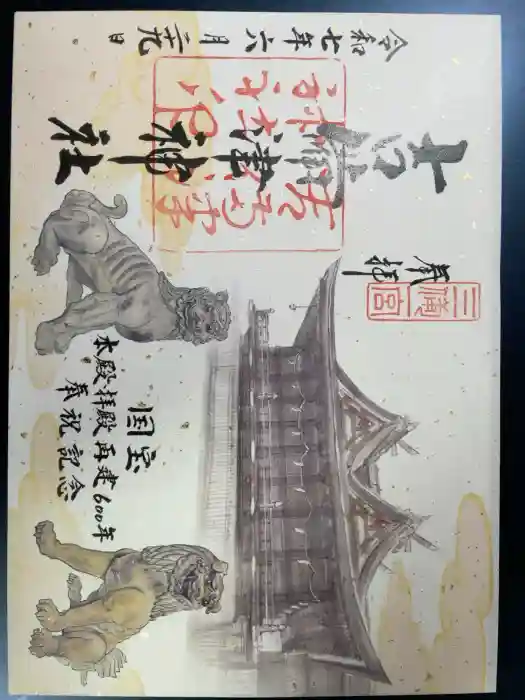 奉拝
三備一宮
吉備津神社
令和七年六月廿九日
国宝
本殿拝殿再建600年
奉祝記念